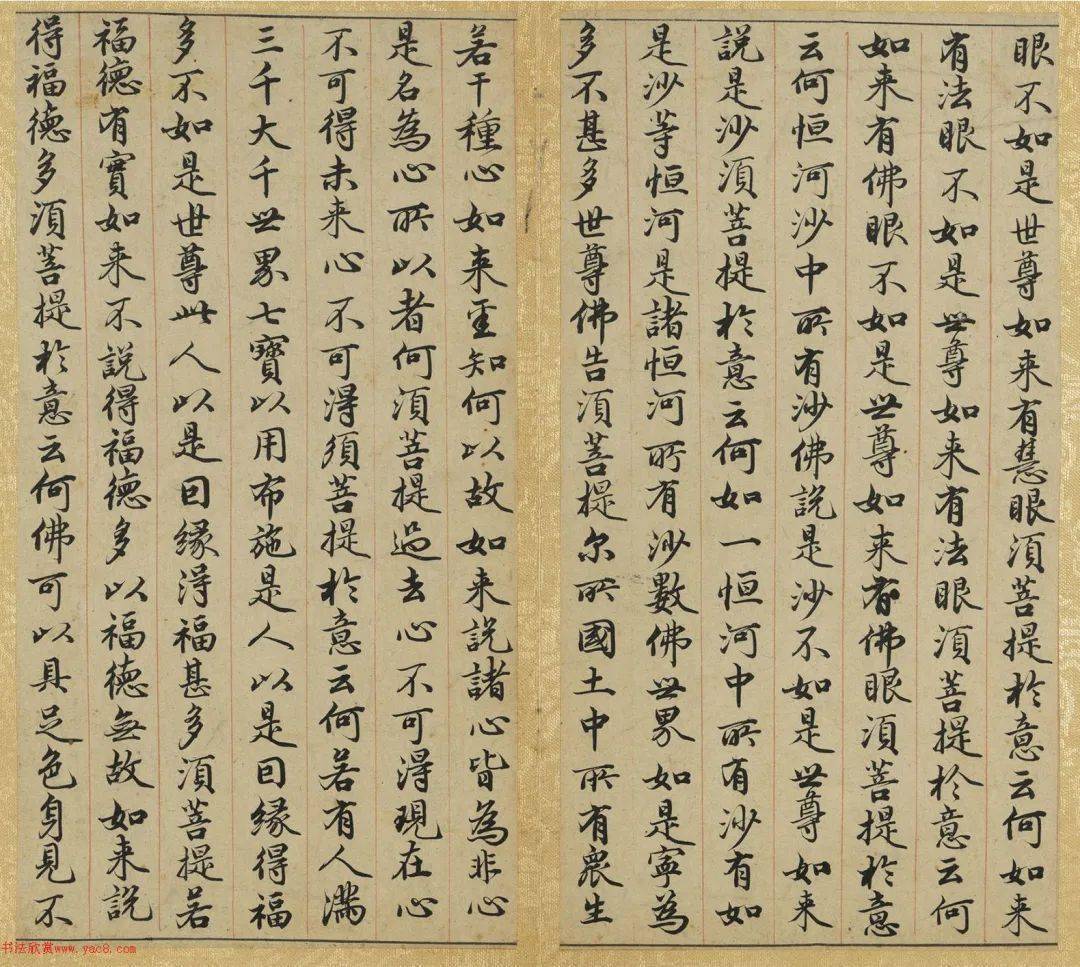 眼不如是世尊如来有慧眼湏菩提扵意云何如来
有法眼不如是世尊如来有法眼湏菩提扵意云何
如来有佛眼不如是世尊如来有佛眼湏菩提扵意
云何恒河沙中所有沙佛説是沙不如是世尊如来
説是沙湏菩提扵意云何如一恒河中所有沙有如
是沙等恒河是諸恒河所有沙數佛世界如是寧為
多不甚多世尊佛告湏菩提尔所國土中所有衆生
若干種心如来悉知何以故如来説諸心皆為非心
是名為心所以者何湏菩提過去心不可得現在心
不可得未来心不可得須菩提扵意云何若有人滿
三千大千世界七寶以用布施是人以是因緣得福
多不如是世尊此人以是因緣得福甚多湏菩提若
福德有實如来不説得福德多以福德無故如来説
得福德多湏菩提扵意云何佛可以具足色身見不
书法欣赏www.yac8.com